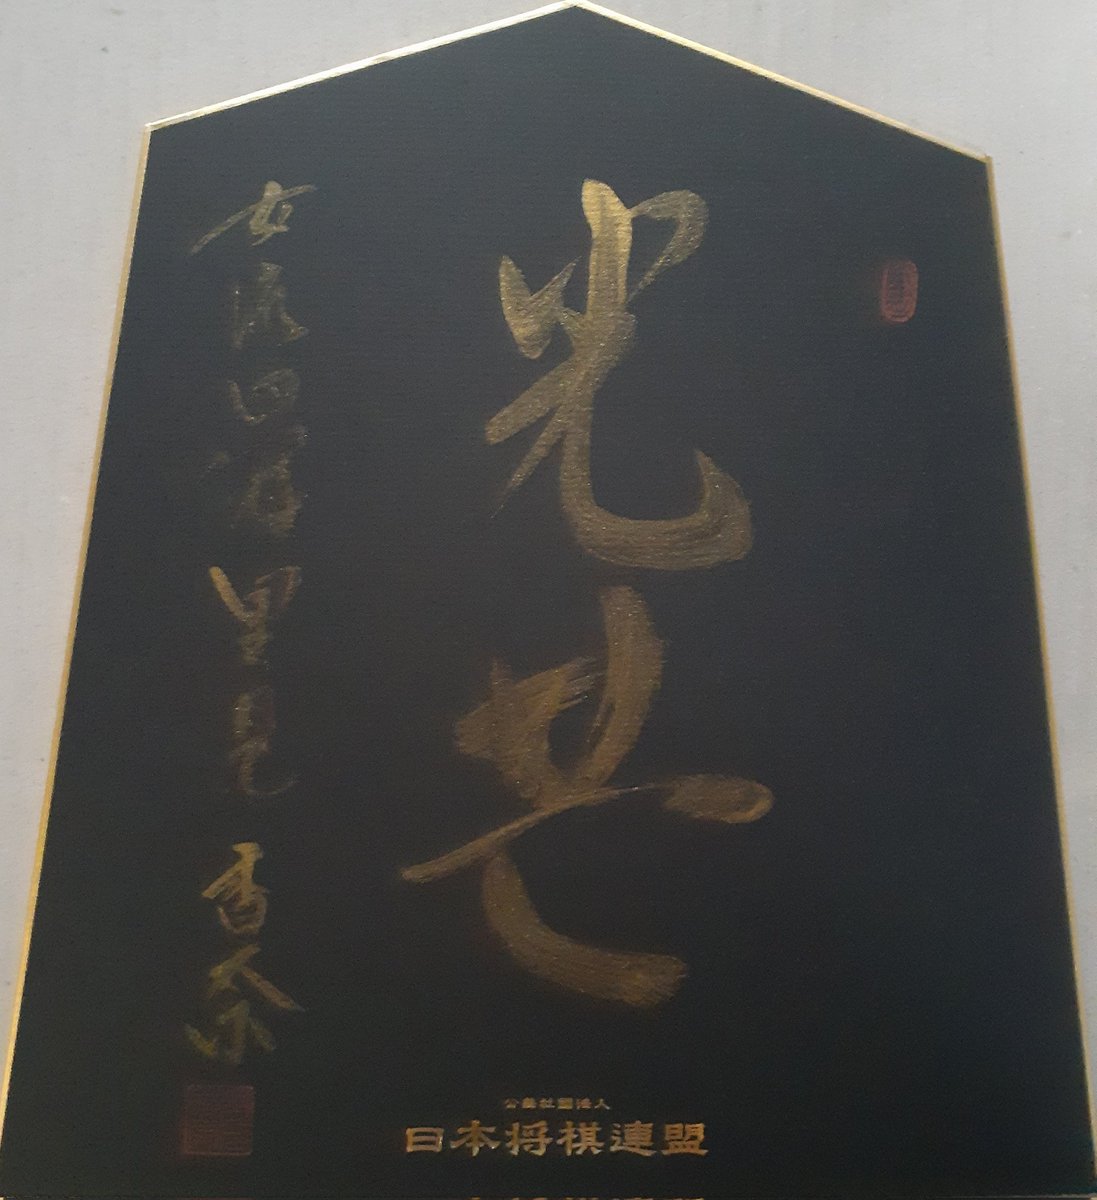 光芒
女流四冠 里見 香奈
公益社団法人
日本将棋連盟